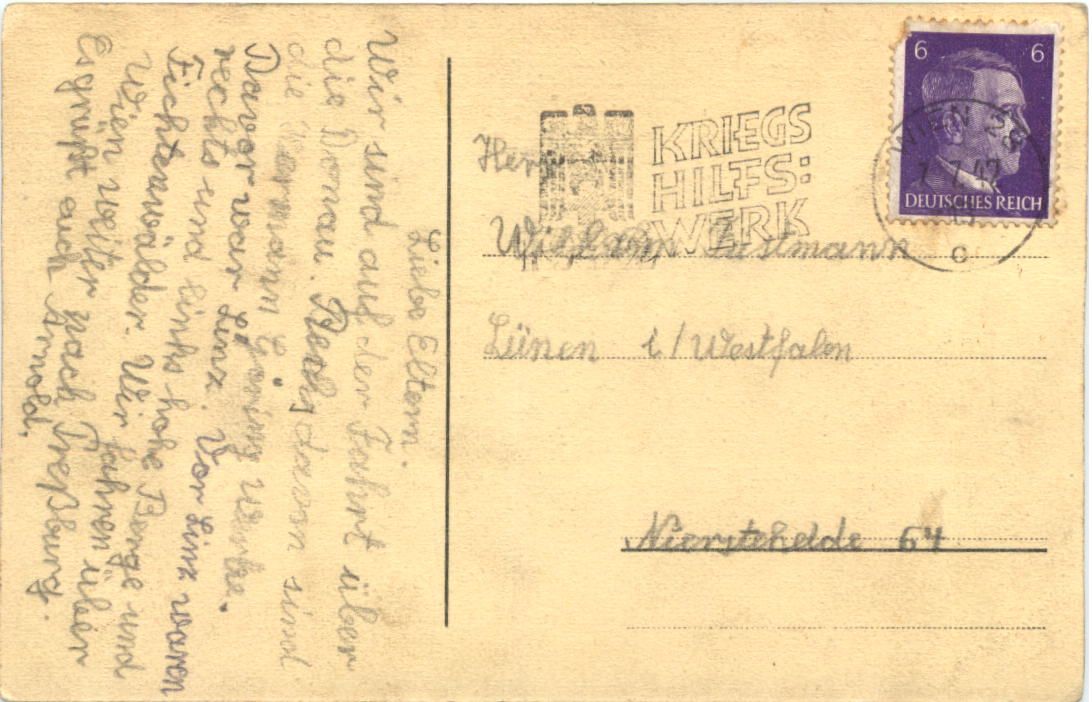 Liebe Eltern.
Wir sind auf der Fahrt über
die Donau. Rechts davon sind
die Hermann Göring Werke.
Davor war Linz. Vor Linz waren
rechts und links hohe Berge und
Fichtenwälder. Wir fahren über
Wien weiter nach Preßburg.
Es grüßt euch Arnold.
6 6
DEUTSCHES REICH
WIEN
7.42
c
KRIEGS
HILFS:
WERK
Herrn
Wilhelm
Lünen i/Westfalen
Nierstehelde 64